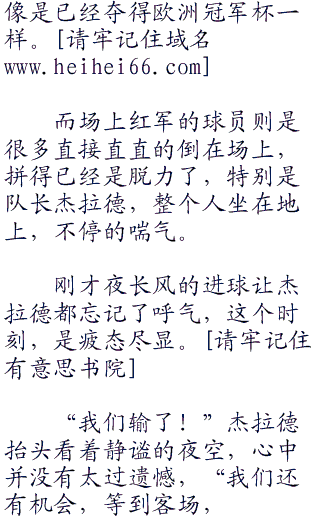 像是已经夺得欧洲冠军杯一
样。[请牢记住域名
www.heihei66.com]
而场上红军的球员则是
很多直接直直的倒在场上，
拼得已经是脱力了，特别是
队长杰拉德，整个人坐在地
上，不停的喘气。
刚才夜长风的进球让杰
拉德都忘记了呼气，这个时
刻，是疲态尽显。[请牢记住
有意思书院]
“我们输了！”杰拉德
抬头看着静谧的夜空，心中
并没有太过遗憾，“我们还
有机会，等到客场，